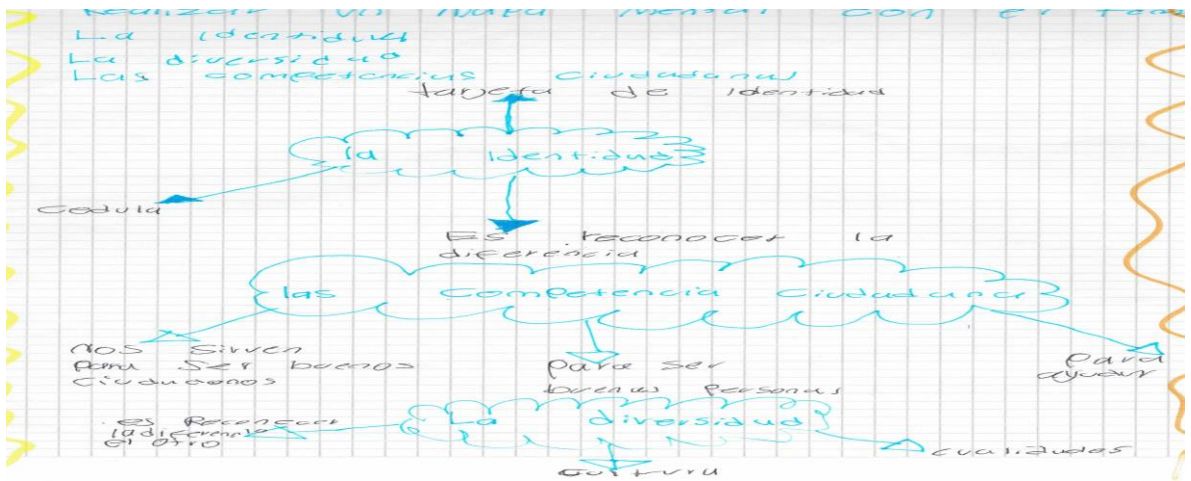 Realizar un mapa mental con el tema
La identidad
La diversidad
Las competencias ciudadanas
tarjeta de identidad
la identidad
Cedula
Es reconocer la
diferencia
las Competencia Ciudadana
nos sirven
para ser buenos
ciudadanos
para ser
buenas personas
para
ayudar
La diversidad
es Reconocer
la diferencia
el otro
cultura
cualidades